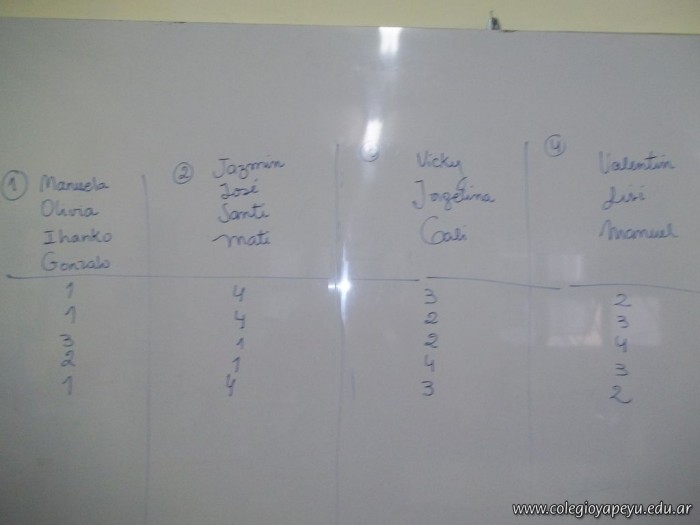 1 Manuela
Olivia
Ihanko
Gonzalo
1
1
3
2
1
2 Jazmin
José
Santi
Mati
4
4
1
1
4
3 Vicky
Jorgelina
Gali
3
2
2
4
3
4 Valentin
Lisi
Manuel
2
3
4
3
2
www.colegioyapeyu.edu.ar